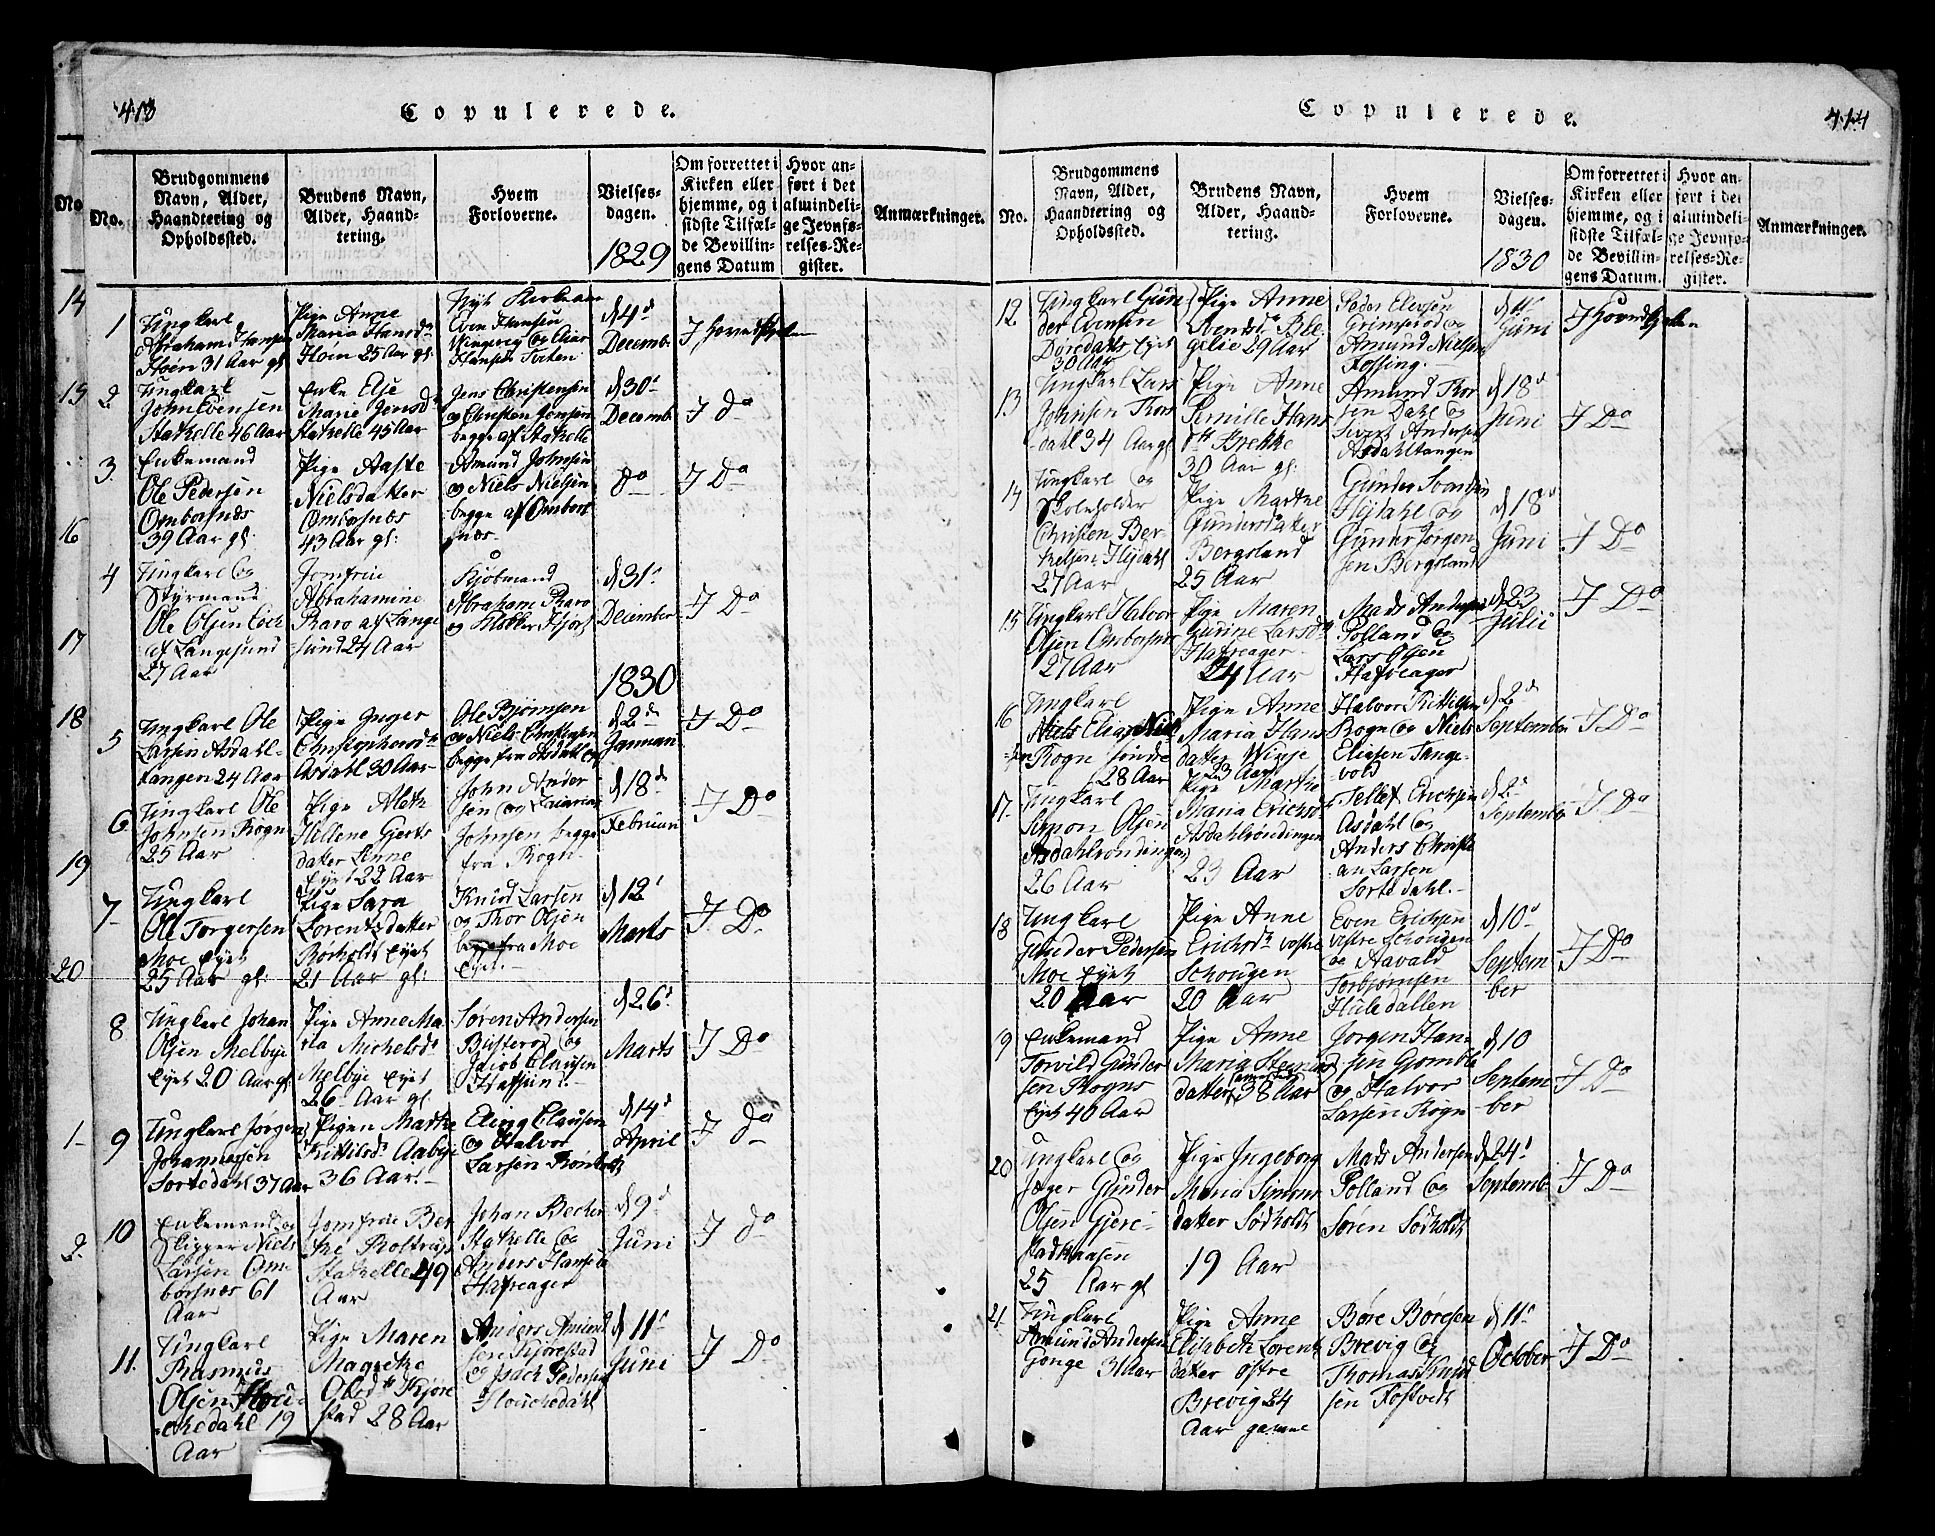 413
Copulerede.
No
No.
Brudgommens
Navn, Alder,
Haandtering og
Opholdssted.
Brudens Navn,
Alder, Haand-
tering.
Hvem
Forloverne.
Vielses-
dagen.
1829
Om forrettet i
Kirken eller
hjemme, og i
sidste Tilfæl-
de Bevillin-
gens Datum
Hvor an-
ført i det
almindeli-
ge Jevnfø-
relses-Re-
gister.
Anmærkninger.
14
15
16
17
18
19
20
1
2.
1
Ungkarl
Abraham Hansen
Hoen 31 Aar gl
Pige Anne
Maria Hansdr
Hoen 25 Aar gl:
Even Hansen
Hansen Tveten
d 4d
Decemb
I hovedkirken
2.
Ungkarl
John Evensen
Stathelle 46 Aar
Enke Else
Marie Jensdr
Stathelle 45 Aar
Jens Christensen
og Christen Jensen
begge af Stathelle
d 30t
Decemb
I do
3.
Enkemand
Ole Pedersen
Omborsnæs
39 Aar gl:
Pige Aaste
Nielsdatter
Ombörsnæs
43 Aar gl:
Amund Johnsen
og Niels Nielsen
begge af Ombors
næs.
do
I Do
4
Ungkarl og
Styrmand
Ole Olsen Eoch
af Langesund
27 Aar
Jomfrue
Abrahamine
Raro af Lange
sund 24 Aar
Kjøbmand
Abraham Raro
og Klokker Fjors
d 31t
December
I Do
1830
5
Ungkarl Ole
Larsen Asdahl-
tangen 24 Aar
Pige Inger
Christophersdr
Asdahl 30 Aar
Ole Bjørnsen
og Niels Christensen
begge fra Asdahl
d 2d
Januari
I Do
6
Ungkarl Ole
Johnsen Rogn
25 Aar
Pige Aleth
Hellene Gjerts
datter
Eyet 22 Aar
John Ander
sen og Zacarias
Johnsen begge
fra Rogn
d 18de
Februari
I Do
7
Ungkarl
Ole Torgersen
Moe Eyet
25 Aar gl:
Pige Sara
Lorentzdatter
Rørholdt Eyet
21 Aar gl:
Knud Larsen
og Thor Olsen
begge fra Moe
Eyet.
d 12t
Marts
I Do
8
Ungkarl Johan
Olsen Melbye
Eyet 20 Aar gl:
Pige Anne Ma
ria Michelsdr
Melbye Eyet
26 Aar gl
Søren Andersen
Busterød og
Jacob Clausen
Hafsund
d 26t
Marts
I Do
9
Ungkarl Jørgen
Johannesen
Sortedahl 37 Aar
Pigen Marthe
Kittilsdr Aabye
36 Aar
Eling Clausen
og Halvor
Larsen Rønholt
d 14d
April
I do
10
Enkemand og
Ligger Niels
Larsen Om
börsnæs 61
Aar
Jomfrue Ber
the Roltrup
Stathelle 49
Aar
Johan Becher
Stathelle og
Anders Hansen
Hafreager
d 9d
Juni
I do
11.
Ungkarl
Rasmus
Olsen Houe
chedahl 19
Aar
Pige Maren
Magrethe
Olsdr Kjøre
stad 28 Aar
Anders Amund
sen Kjørestad
og Isach Pedersen
Houchedahl
d 11t
Juni
I Do
414
Copulerede.
No.
Brudgommens
Navn, Alder,
Haandtering og
Opholdssted.
Brudens Navn,
Alder, Haand-
tering.
Hvem
Forloverne.
Vielses-
dagen.
1830
Om forrettet i
Kirken eller
hjemme, og i
sidste Tilfæl-
de Bevillin-
gens Datum.
Hvor an-
ført i det
almindeli-
ge Jevnfø-
relses-Re-
gister.
Anmærkninger.
12
Ungkarl Gun
der Evensen
Dørdals Eyet
30 Aar
Pige Anne
Arendsdr Ble
gelie 29 Aar
Peder Elevsen
Grimsrød og
Amund Nielsen
Fossing.
Juni
I hovedkirken
13
Ungkarl Lars
Johnsen Thors
dahl 34 Aar gl
Pige Anne
Pernille Hans
dtr Brekke
30 Aar gl:
Amund Thor
sen Dahl og
Sivert Andersen
Asdahltangen
d 18d
Juni
I Do
14
Ungkarl og
Skoleholder
Christen Ber
thelsen Hydahl
27 Aar
Pige Marthe
Gundersdatter
Bergsland
25 Aar
Gunder Svensen
Hydahl og
Gunder Jørgen
sen Bergsland
d 18d
Juni
I Do
15
Ungkarl Halvor
Olsen Ombörsnæs
27 Aar
Pige Maren
Gurine Larsdr
Hafreager
24 Aar
Mads Andersen
Polland og
Lars Olsen
Hafreager
d 23
Julii
I Do
16
Ungkarl
Niels Elias Niel
sen Rogn søndre
28 Aar
Pige Anne
Maria Hans
datter Winje
23 Aar
Halvor Kittilsen
Rogn og Niels
Eliasen Tange
vold
d 2d
September
I Do
17
Ungkarl
Simon Olsen
Asdahlröndingen
26 Aar
Pige Marthe
Maria Erichsdr
Asdahlröndingen
23 Aar
Tellef Erichsen
Asdahl og
Anders Christi
an Larsen
Sortedahl.
d 2d
Septemb
I Do
18
Ungkarl
Gunder Pedersen
Moe Eyet
20 Aar
Pige Anne
Erichsdr vestre
Schougen
20 Aar
Even Erichsen
vestre Schougen
og Aavald
Torbjørnsen
Huledallen
d 10d
Septem
ber
I Do
9
Enkemand
Torvild Gunder
sen Rogns
Eyet 40 Aar
Pige Anne
Maria
datter 38 Aar
Jørgen Han
sen Gjømble
og Halvor
Larsen Rogn
d 10
Septem
ber
I Do
20
Ungkarl og
Jæger Gunder
Olsen Gjere
stadhaasen
25 Aar gl
Pige Ingeborg
Maria Simons
datter Sødholdt
19 Aar
Mads Andersen
Polland og
Søren Sødholdt
d 24t
Septemb
I Do
21
Ungkarl
Amund Andersen
Gonge 31 Aar
Pige Anne
Elisabeth Lorentz
datter østre
Brevig 24
Aar gamme
Børe Børesen
Brevig og
Thomas Knud
sen Fostvedt
d 11t
October
I Do